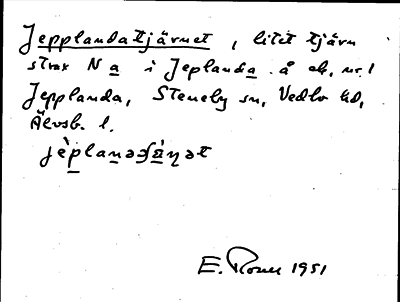 Jepplandatjärnet, litet tjärn
strax N a i Jeplanda å ek. nr. 1
Jepplanda, Steneby sn, Vedbo hd,
Älvsb. l.
E. Rosell 1951